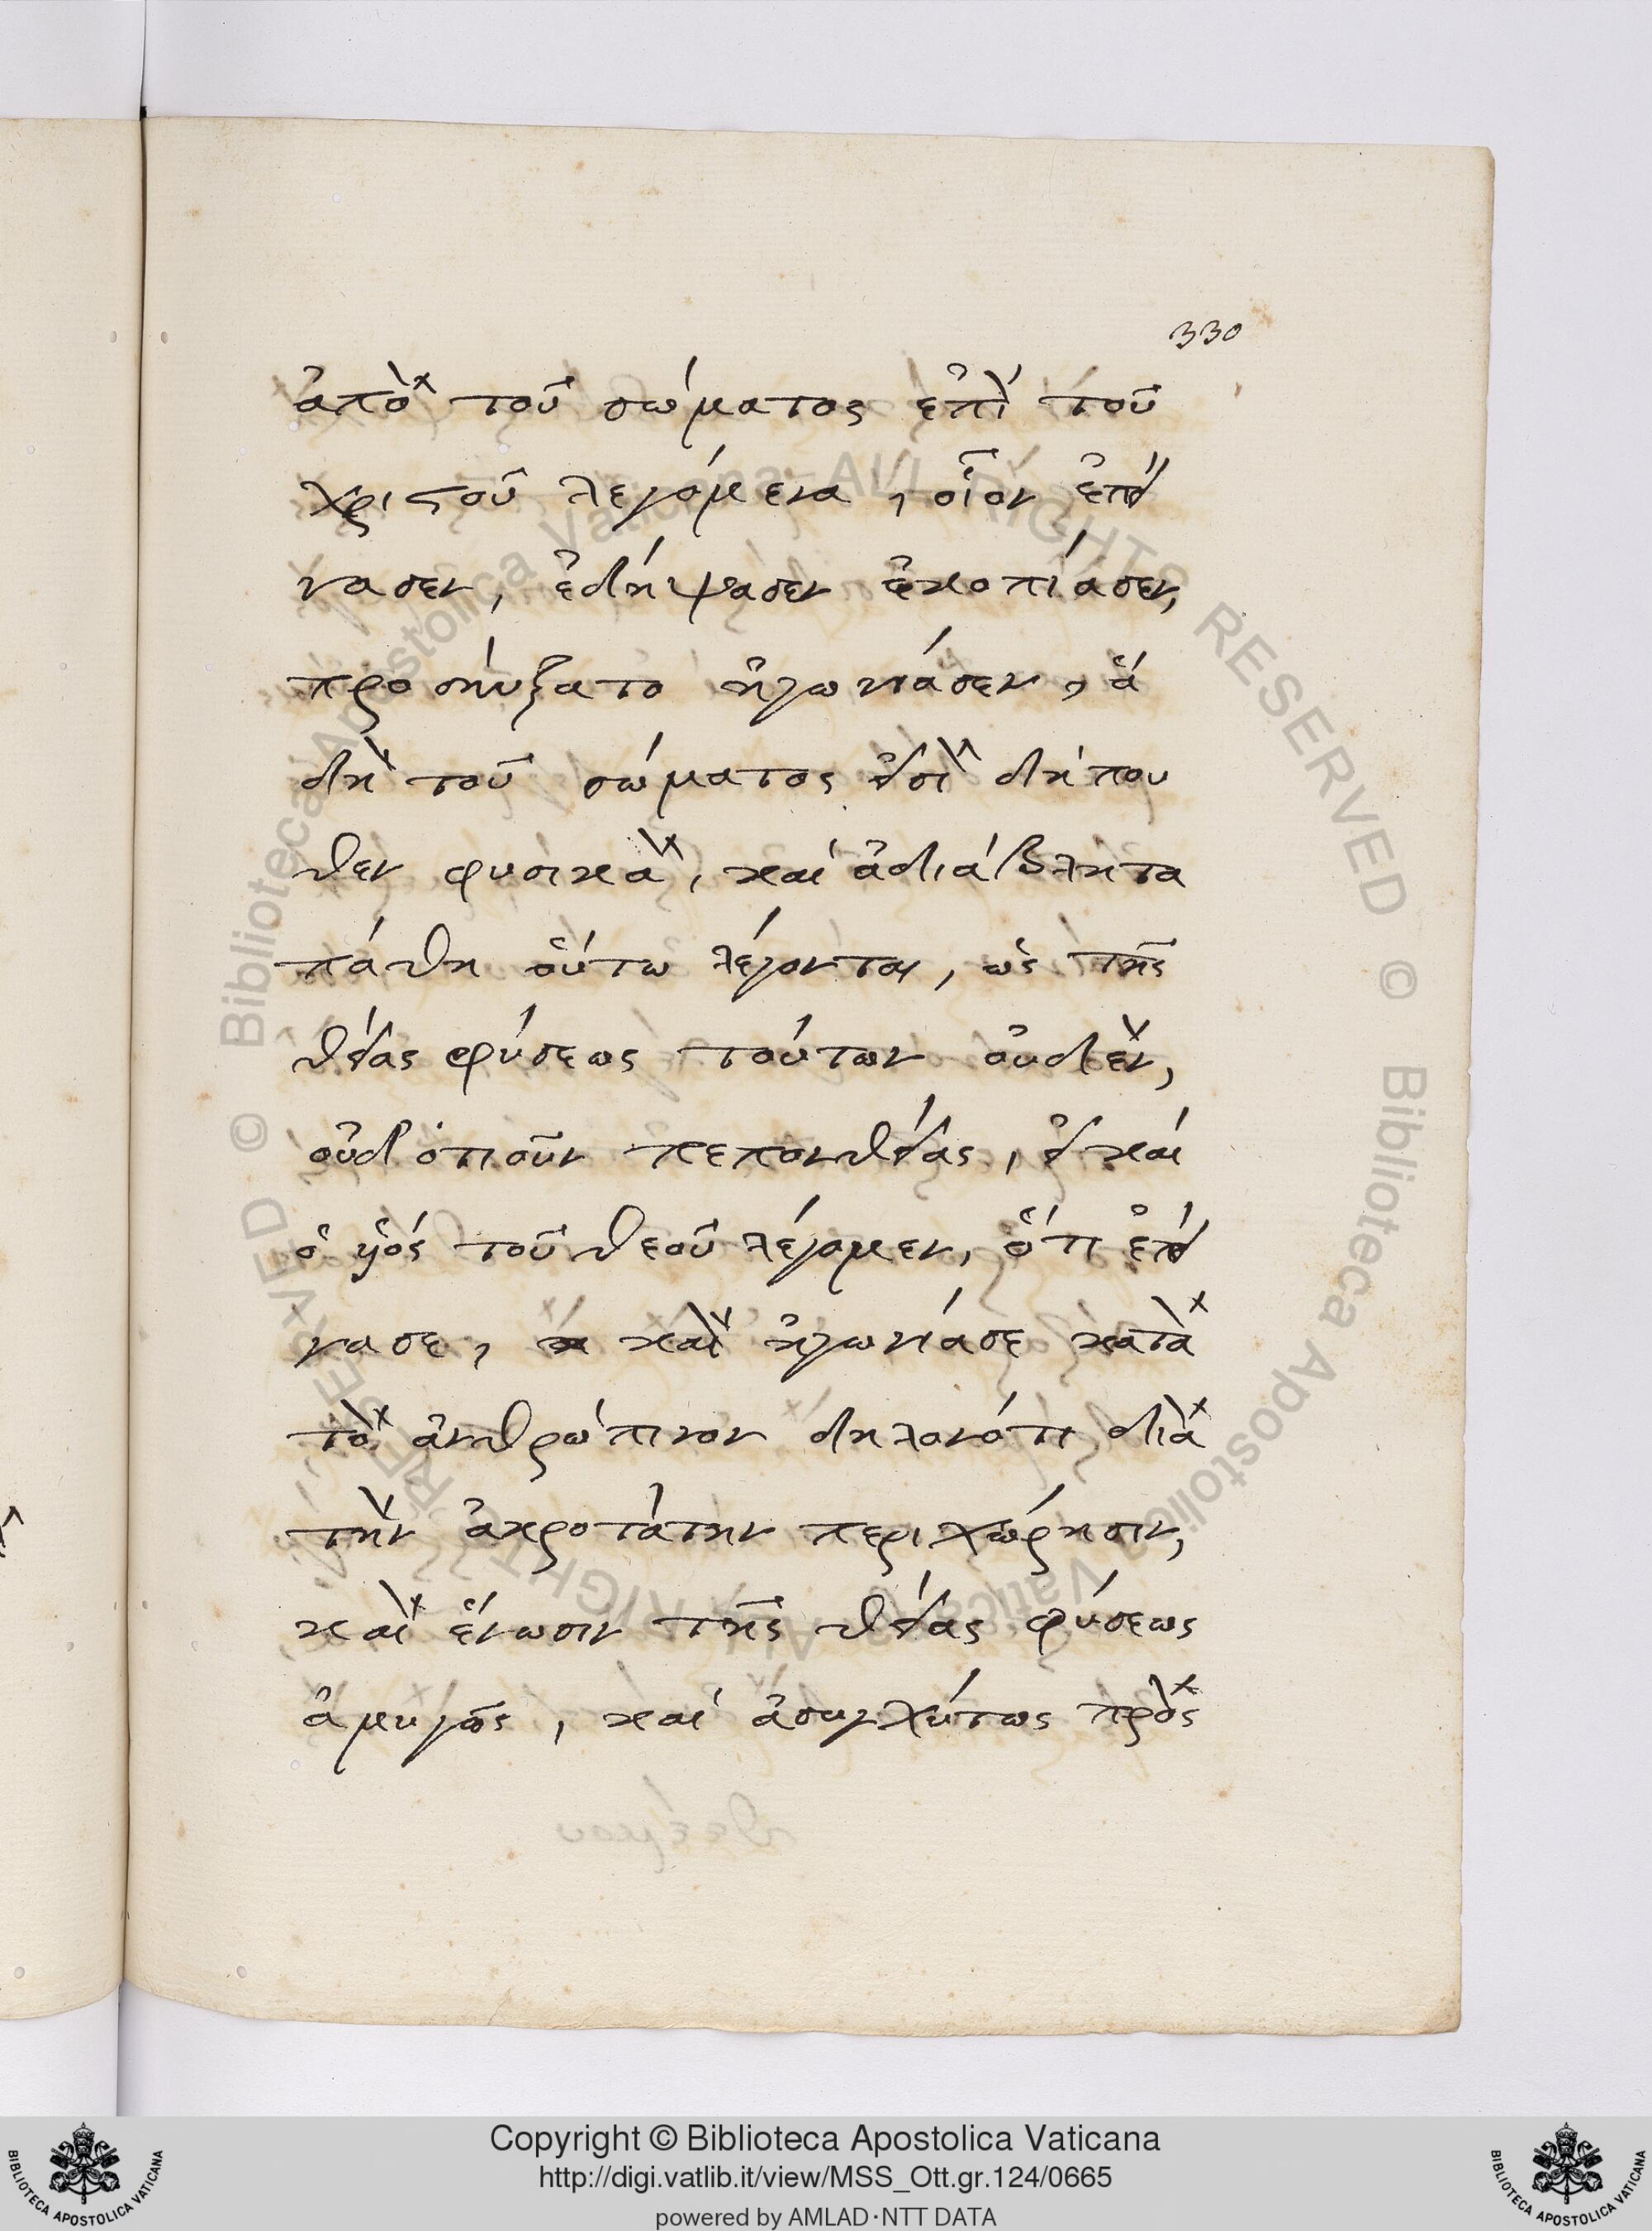 330
ἀπὸ τοῦ σώματος ἐπὶ τοῦ
χριστοῦ λεγόμενα, οἷον ἐπεί
νασεν, ἐδίψησεν ἐκοπίασεν,
προσηύξατο ἠγωνίασεν, ἅ
δὴ τοῦ σώματος εἰσὶ δήπου
θεν φυσικὰ, καί ἀδιάβλητα
πάθη οὕτω λέγονται, ὡς τῆς
θείας φύσεως τούτων οὐδὲν,
οὐδ' ὁτιοῦν πεπονθείας, εἰ καί
ὁ ὑός τοῦ θεοῦ λέγομεν, ὅτι ἐπεί
νασε, κ καὶ ἠγωνίασε κατὰ
τὸ ἀνθρώπινον δηλονότι διὰ
τὴν ἀκροτάτην περιχώρησιν,
καὶ ἕνωσιν τῆς θείας φύσεως
ἀμυγῶς, καί ἀσυγχύτως πρὸς
Copyright © Biblioteca Apostolica Vaticana
http://digi.vatlib.it/view/MSS_Ott.gr.124/0665
powered by AMLAD·NTT DATA